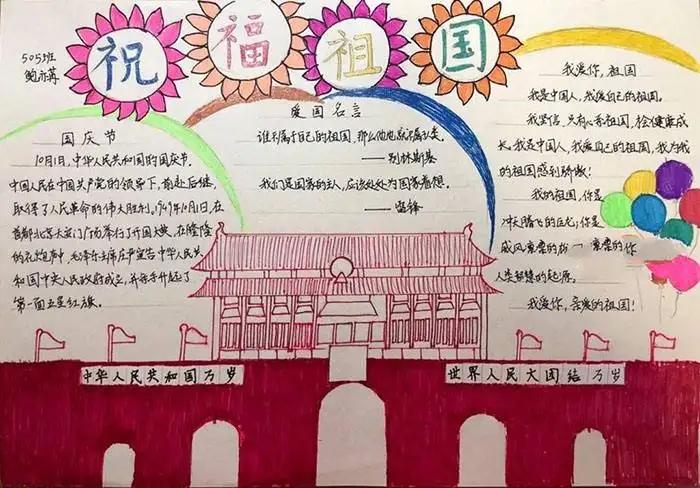 祝福祖国
505班
鲍亦苒
国庆节
10月1日,中华人民共和国的国庆节.
中国人民在中国共产党的领导下,前赴后继,
取得了人民革命的伟大胜利。1949年10月1日,在
首都北京天安门广场举行了开国大典,在隆隆
的礼炮声中,毛泽东主席庄严宣告中华人民共
和国中央人民政府成立,并亲手升起了
第一面五星红旗。
爱国名言
谁不属于自己的祖国,那么他也就不属于人类。
——别林斯基
我们是国家的主人,应该处处为国家着想。
——雷锋
我爱你,祖国
我是中国人,我爱自己的祖国。
我坚信,只有心系祖国,才会健康成
长,我是中国人,我爱自己的祖国,我为我
的祖国感到骄傲!
我的祖国,你是
冲天腾飞的巨龙;你是
威风凛凛的
你
人类智慧的起源。
我爱你,亲爱的祖国!
中华人民共和国万岁
世界人民大团结万岁